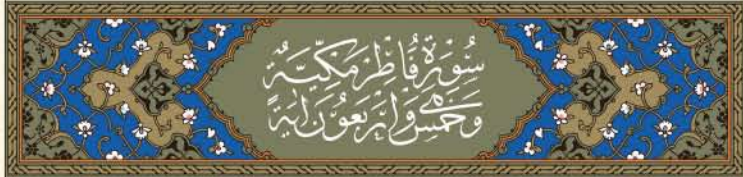 سُورَةُ فَاطِرٍ مَكِّيَّةٌ
وَهِيَ خَمْسٌ وَاَرْبَعُونَ اٰيَةً